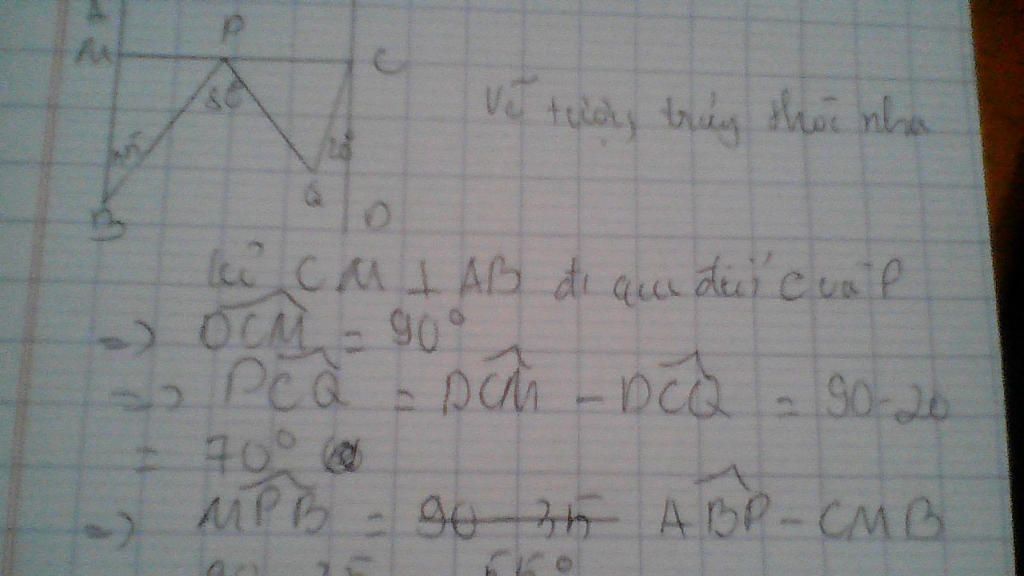 M P C
35 80 20
B Q D
Vẽ tượng trưng thôi nha
kẻ CM ⊥ AB đi qua điểm C và P
=> DCM = 90°
=> PCQ = DCM - DCQ = 90-20
= 70°
=> MPB = 90 - 35 ABP - CMB
90 35 55°